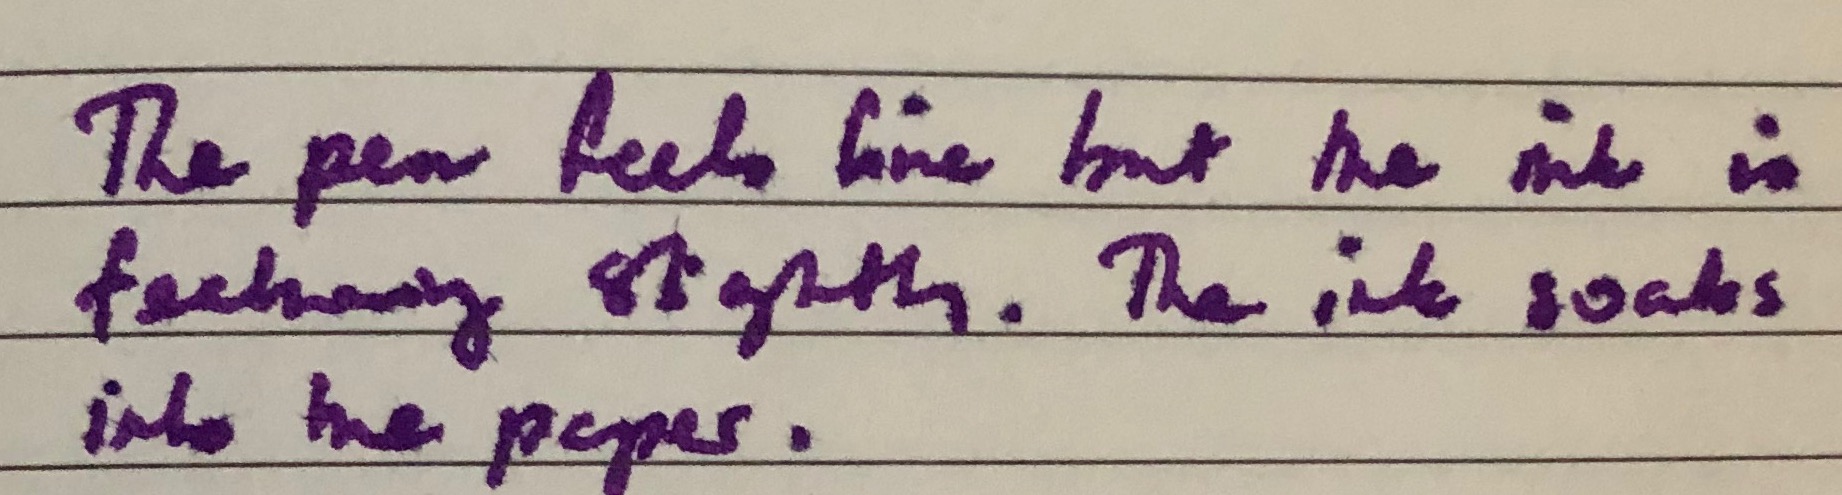 The pen feels fine but the ink is
feathering slightly. The ink soaks
into the paper.